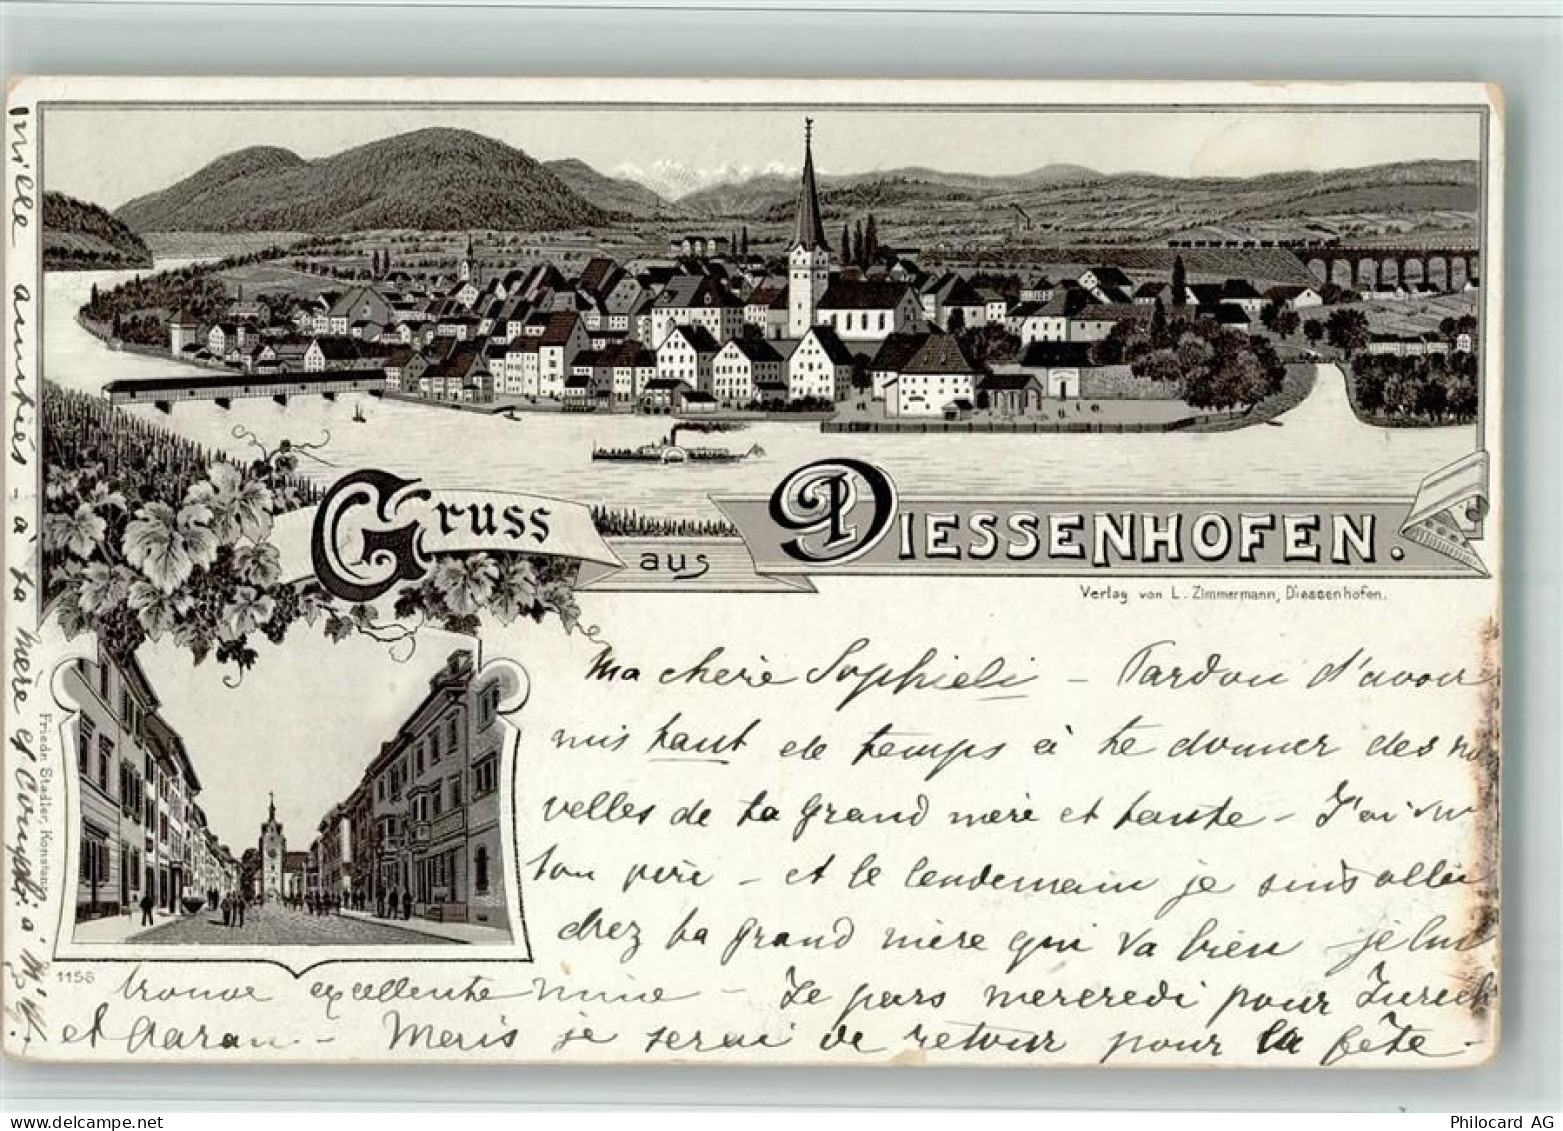 Gruss
aus
DIESSENHOFEN.
Verlag von L. Zimmermann, Diessenhofen.
Ma chère Sophieli - Pardon d'avoir
mis tant de temps à te donner des nou
velles de ta grand mère et tante - J'ai vu
ton père - et le lendemain je suis allée
chez ta grand mère qui va bien je lui
trouve excellente mine - Je pars mercredi pour Zurich
et Aarau. - Mais je serai de retour pour la fête -
mille amitiés - à ta mère et
Friedr. Stadler, Konstanz.
1158
Philocard AG